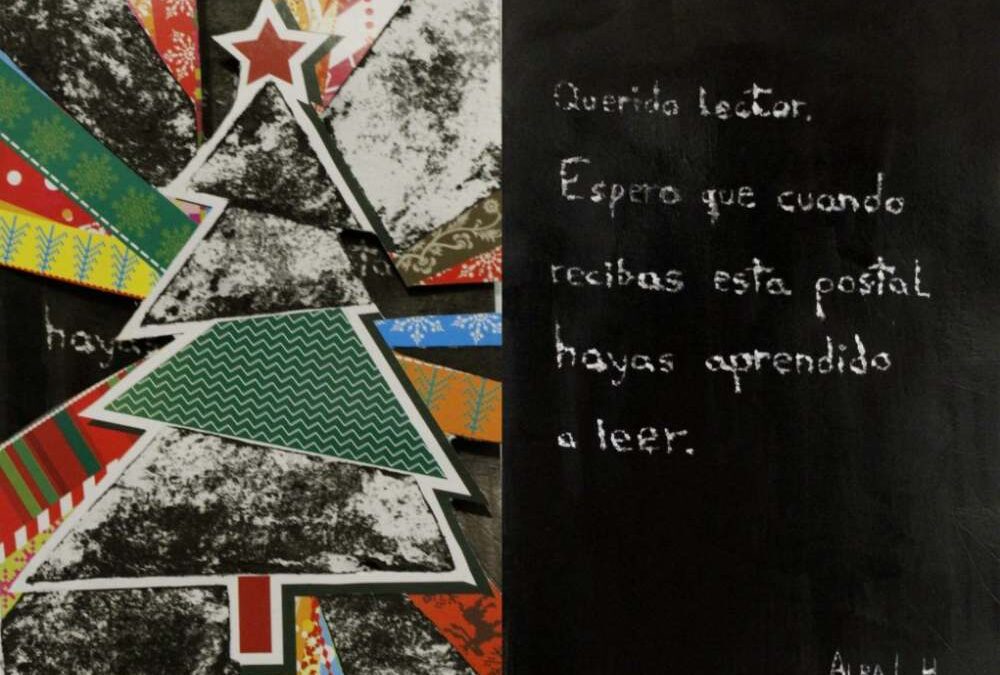 haya
Querido lector.
Espero que cuando
recibas esta postal
hayas aprendido
a leer.